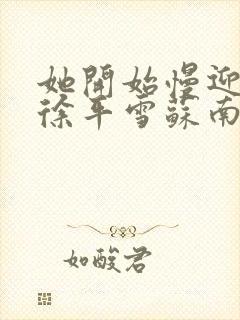 她開始慢迎
徐平雪蘇南
如酸君